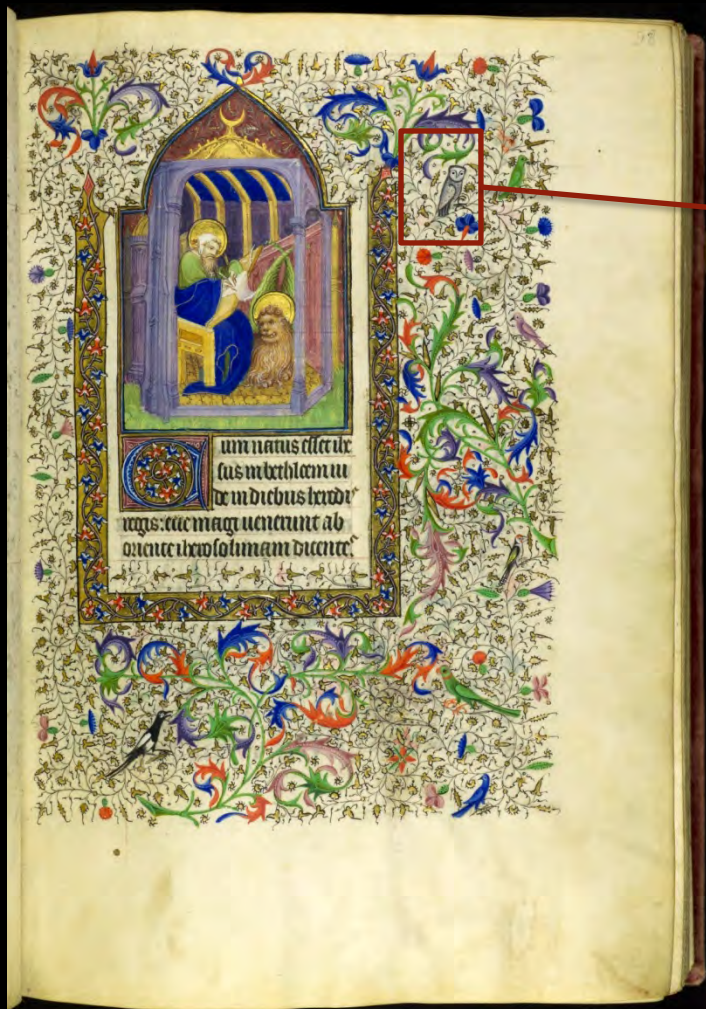 Cum natus esset ihe
sus in bethleem iu
de in diebus herodis
regis: ecce magi uenerunt ab
oriente iherosolimam dicentes